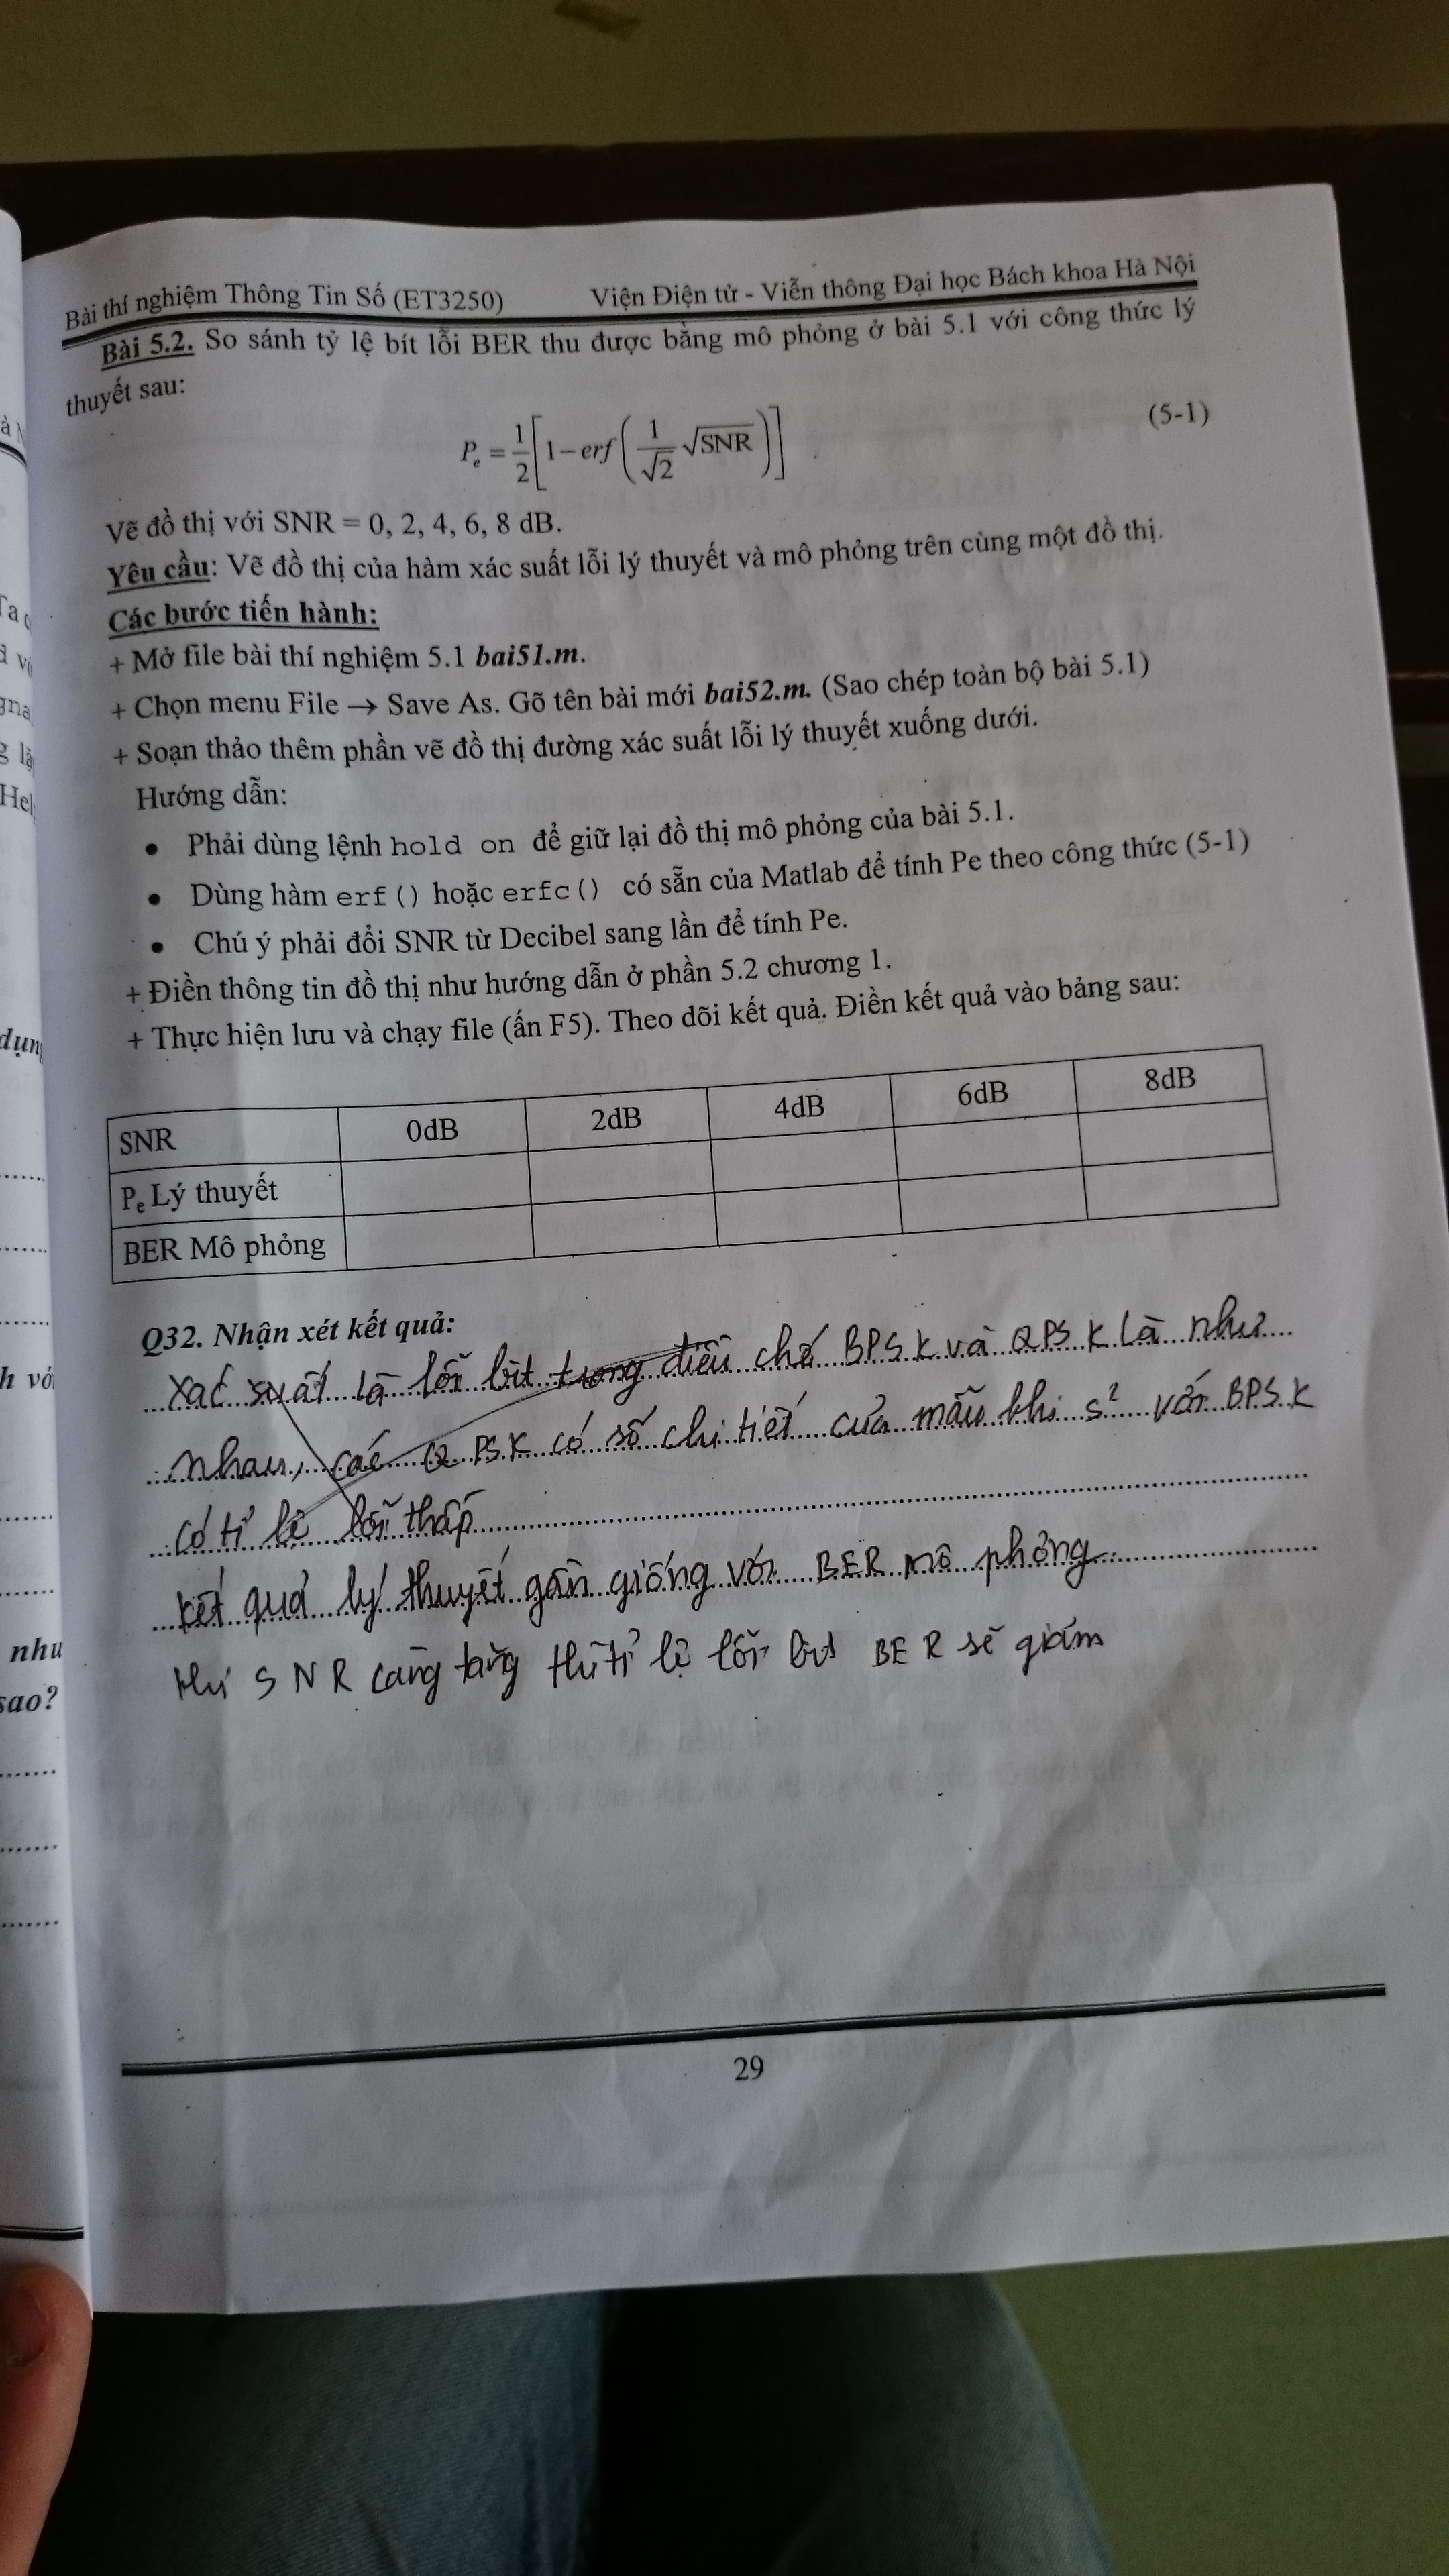 Bài thí nghiệm Thông Tin Số (ET3250) Viện Điện tử - Viễn thông Đại học Bách khoa Hà Nội
Bài 5.2. So sánh tỷ lệ bít lỗi BER thu được bằng mô phỏng ở bài 5.1 với công thức lý
thuyết sau:
P_e = 1/2 [1 − erf (1/√2 √SNR)] (5-1)
Vẽ đồ thị với SNR = 0, 2, 4, 6, 8 dB.
Yêu cầu: Vẽ đồ thị của hàm xác suất lỗi lý thuyết và mô phỏng trên cùng một đồ thị.
Các bước tiến hành:
+ Mở file bài thí nghiệm 5.1 bai51.m.
+ Chọn menu File → Save As. Gõ tên bài mới bai52.m. (Sao chép toàn bộ bài 5.1)
+ Soạn thảo thêm phần vẽ đồ thị đường xác suất lỗi lý thuyết xuống dưới.
Hướng dẫn:
• Phải dùng lệnh hold on để giữ lại đồ thị mô phỏng của bài 5.1.
• Dùng hàm erf() hoặc erfc() có sẵn của Matlab để tính Pe theo công thức (5-1)
• Chú ý phải đổi SNR từ Decibel sang lần để tính Pe.
+ Điền thông tin đồ thị như hướng dẫn ở phần 5.2 chương 1.
+ Thực hiện lưu và chạy file (ấn F5). Theo dõi kết quả. Điền kết quả vào bảng sau:
SNR 0dB 2dB 4dB 6dB 8dB
Pe Lý thuyết
BER Mô phỏng
Q32. Nhận xét kết quả:
xác suất là lỗi bit trong điều chế BPSK và QPSK là như
nhau, các QPSK có số chi tiết của mẫu khi s² với BPSK
có tỉ lệ lỗi thấp
kết quả lý thuyết gần giống với BER mô phỏng
khi SNR càng tăng thì tỉ lệ lỗi bit BER sẽ giảm
29
dụng
như
sao?